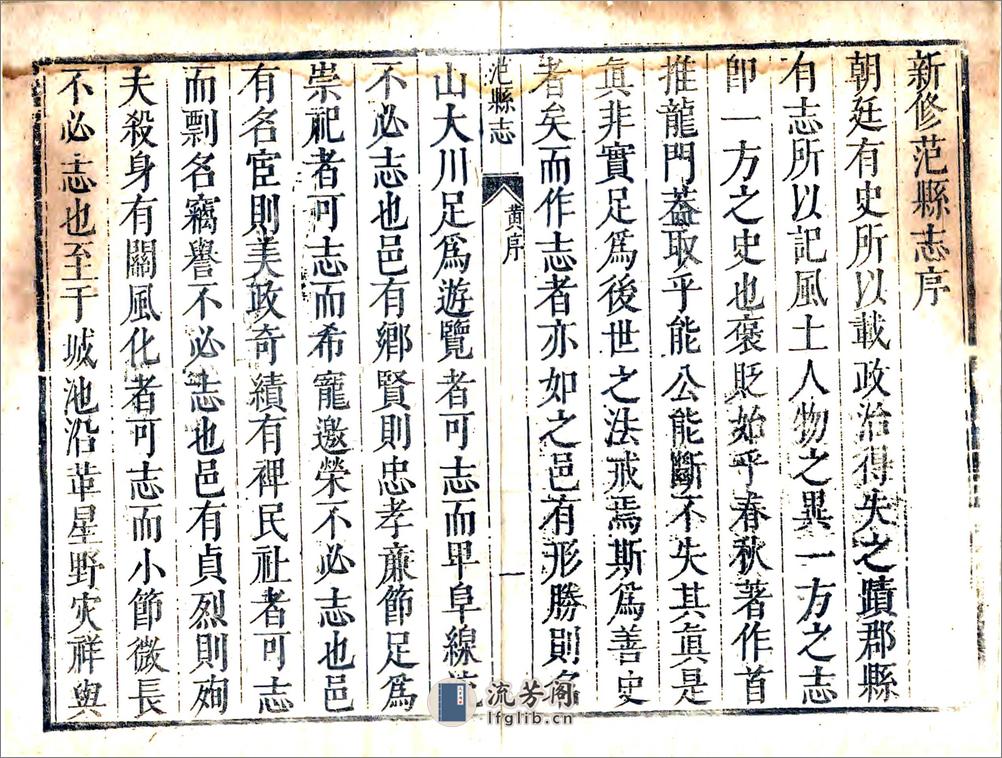 新修范縣志序
朝廷有史所以載政治得失之蹟郡縣
有志所以記風土人物之異一方之志
卽一方之史也褒貶始乎春秋著作首
推龍門葢取乎能公能斷不失其眞是
眞非實足爲後世之法戒焉斯爲善史
者矣而作志者亦如之邑有形勝則名
范縣志
黄序
一
山大川足爲遊覽者可志而卑阜線
不必志也邑有鄉賢則忠孝廉節足爲
崇祀者可志而希寵邀榮不必志也邑
有名宦則美政奇績有裨民社者可志
而剽名竊譽不必志也邑有貞烈則殉
夫殺身有關風化者可志而小節微長
不必志也至于城池沿革星野灾祥與
流芳阁
lfglib.cn